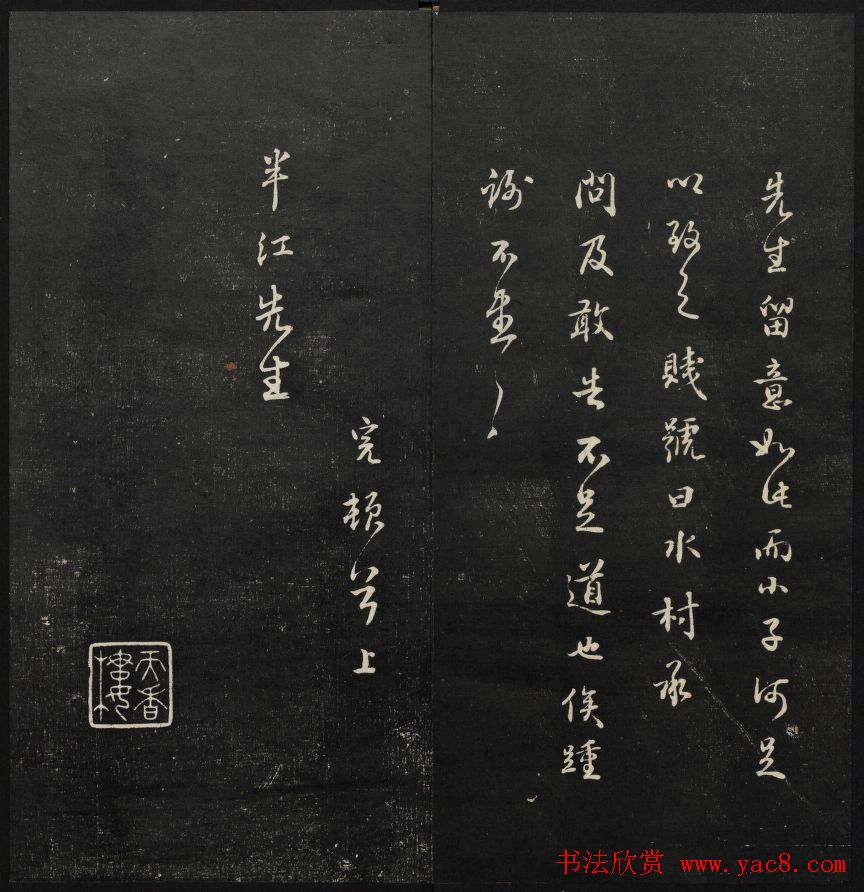 先生留意如此而小子何足
以致之賤號曰水村承
問及敢告不足道也俟踵
謝不盡〻
完頓首上
半江先生
天香樓
书法欣赏 www.yac8.com